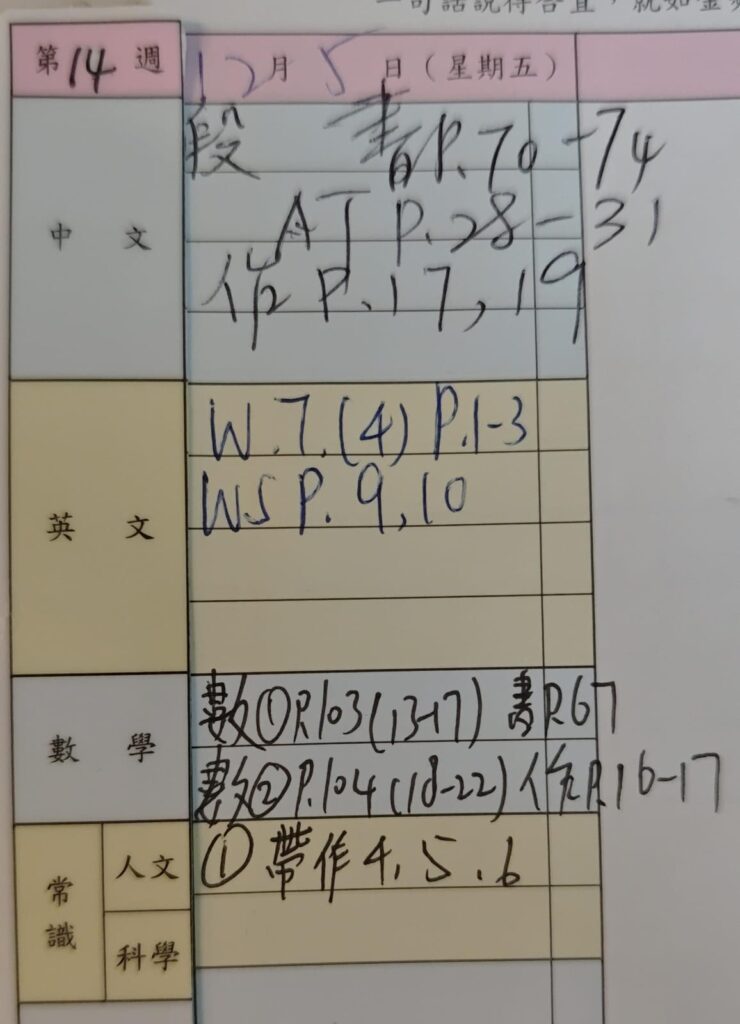 一句話說得合宜，就如金
第14週 12月5日（星期五）
中文
段 書P.70-74
AJ P.28-31
作P.17,19
英文
W.7.(4) P.1-3
WS P.9,10
數學
數①P.103(13-17) 書P.67
數②P.104(18-22) 作P.16-17
常識
人文
①帶作4.5.6
科學